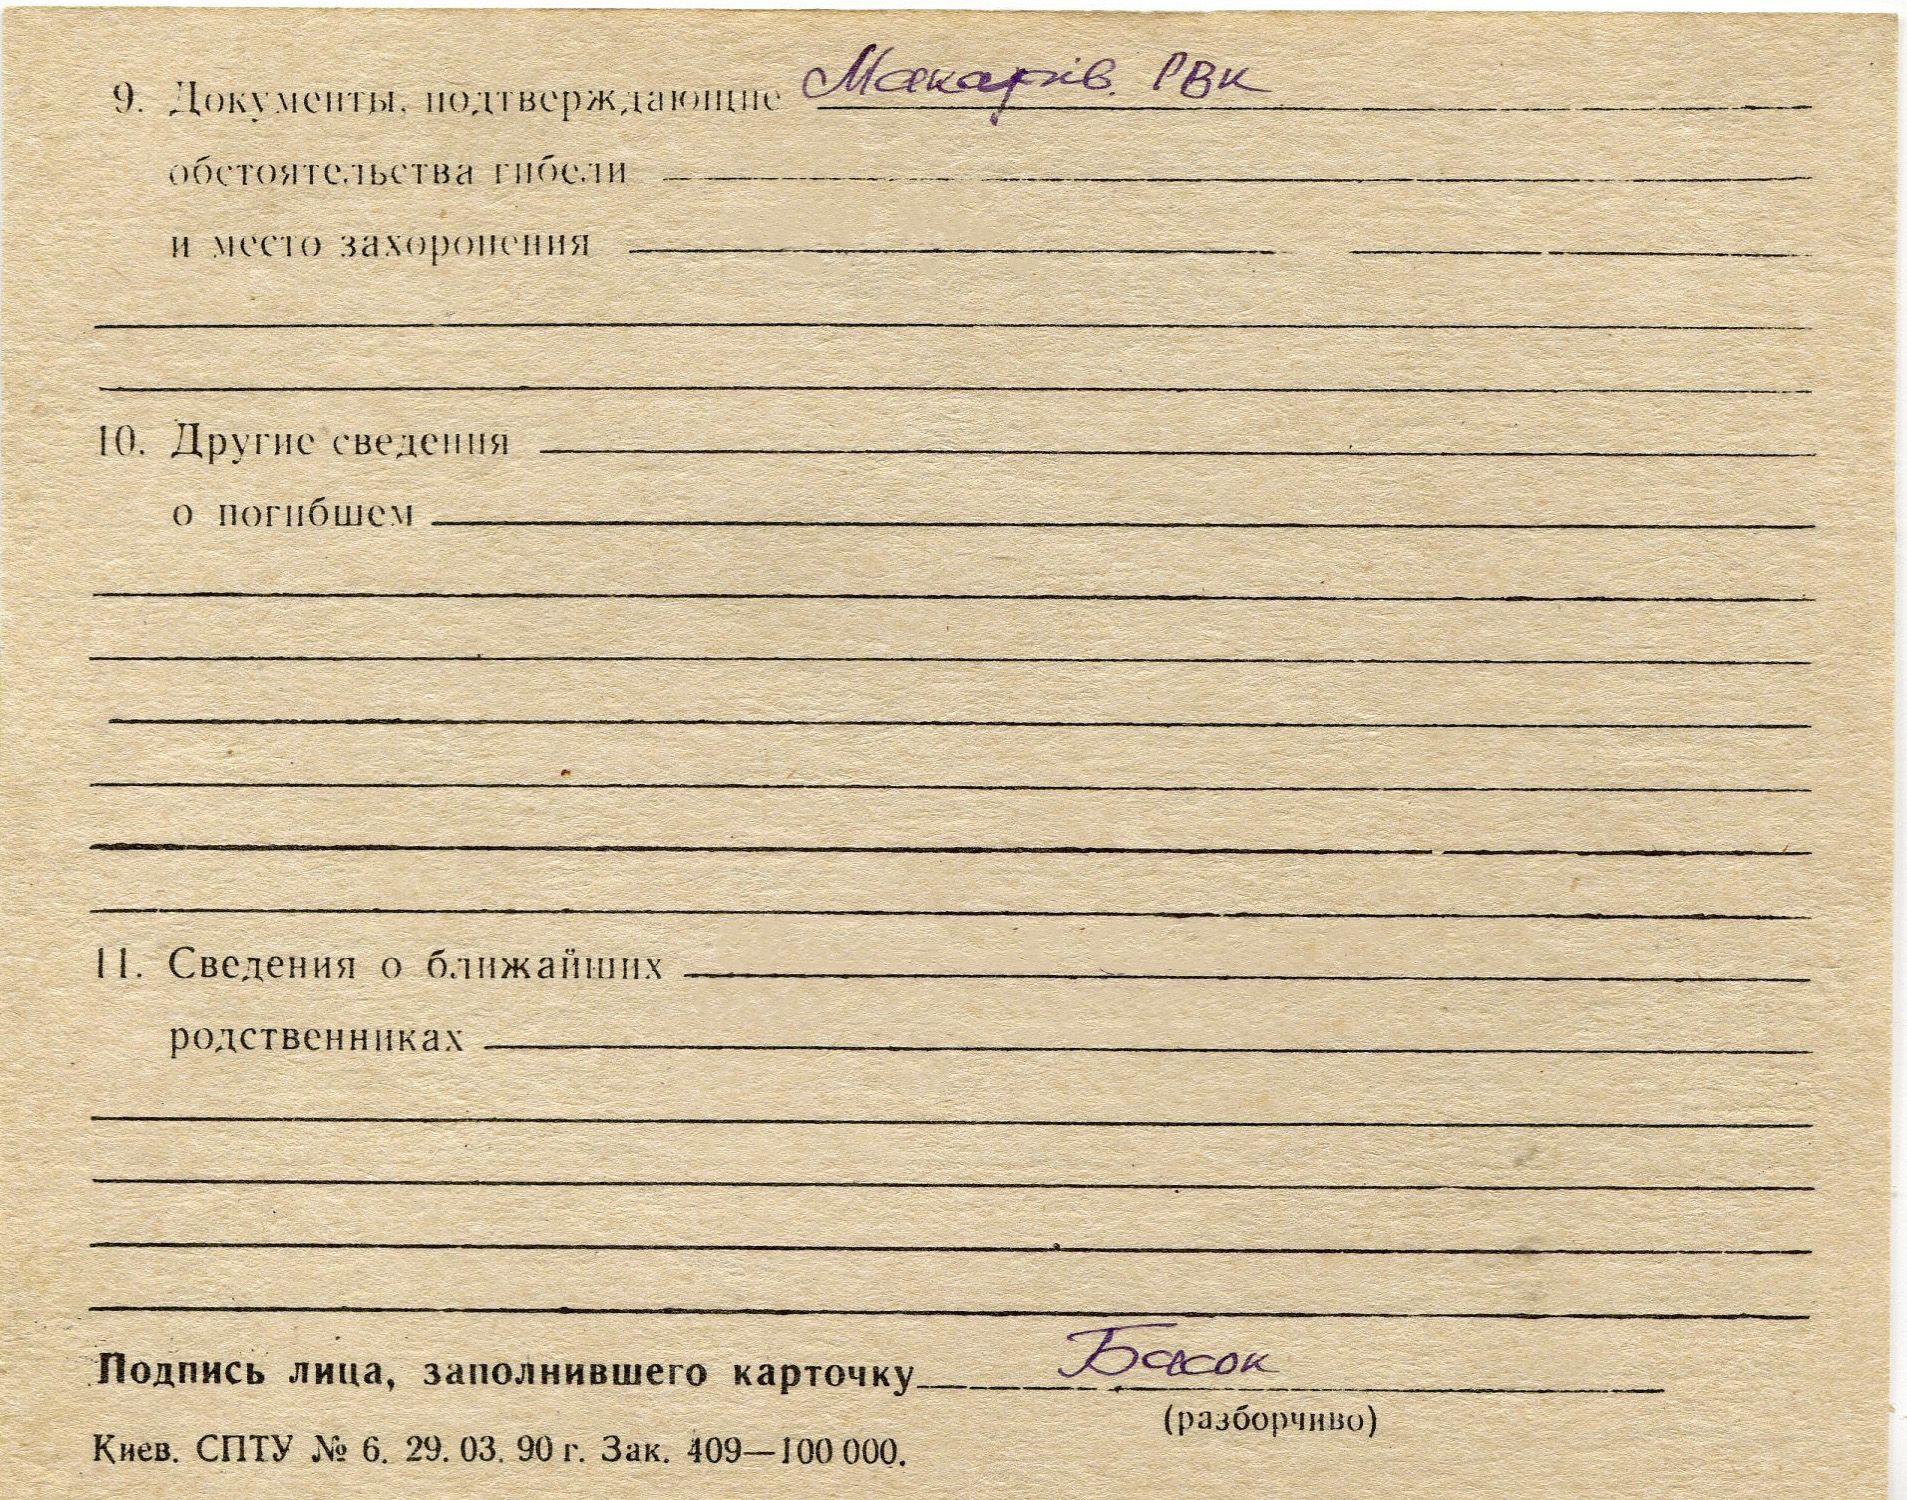 9. Документы, подтверждающие Макарів. РВК
обстоятельства гибели
и место захоронения
10. Другие сведения
о погибшем
11. Сведения о ближайших
родственниках
Подпись лица, заполнившего карточку Басок
(разборчиво)
Киев. СПТУ № 6. 29. 03. 90 г. Зак. 409—100 000.